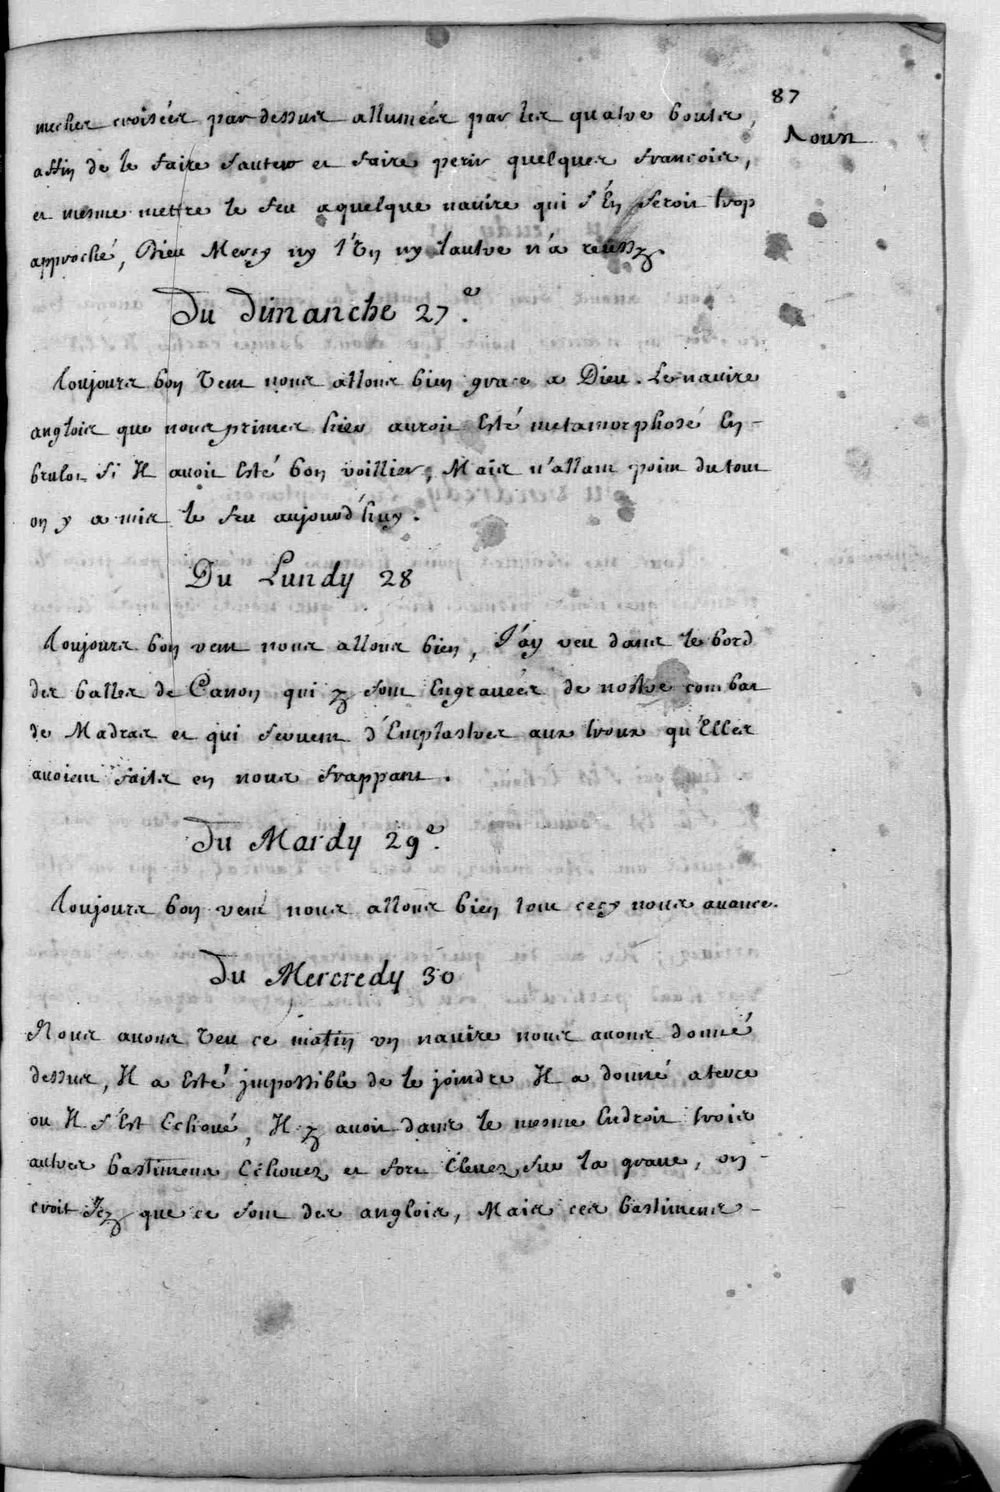 87
Aoust
meches croisées par dessus allumées par les quatre bouts,
affin de le faire sauter et faire perir quelques francois,
et mesme mettre le feu aquelque navire qui s'En seroit trop
approché, Dieu Mercy ny l'Vn ny lautre n'a reussy
Du Dimanche 27.e
Toujours bon Vent nous allons bien grace a Dieu. Le navire
anglois que nous primes hier auroit Esté metamorphosé En-
brulot Si Il avoit Esté bon voillier, Mais n'allant point du tout
on y a mis le feu aujourd'huy.
Du Lundy 28
Toujours bon vent nous allons bien, J'ay veu dans le bord
des balles de Canon qui y sont Engravées de nostre combat
de Madras et qui servent d'Emplastres aux trous qu'Elles
avoient faits en nous frappant.
Du Mardy 29.e
Toujours bon vent nous allons bien tout cecy nous avance.
Du Mercredy 30
Nous avons Veu ce matin vn navire nous avons donné
dessus, Il a Esté jmpossible de le joindre Il a donné aterre
ou Il s'Est Echoué, Il y avoit dans le mesme Endroit trois
autres bastimens Echouez et fort Elevez sur la grave, on-
croit Jcy que ce sont des anglois, Mais ces bastimens-